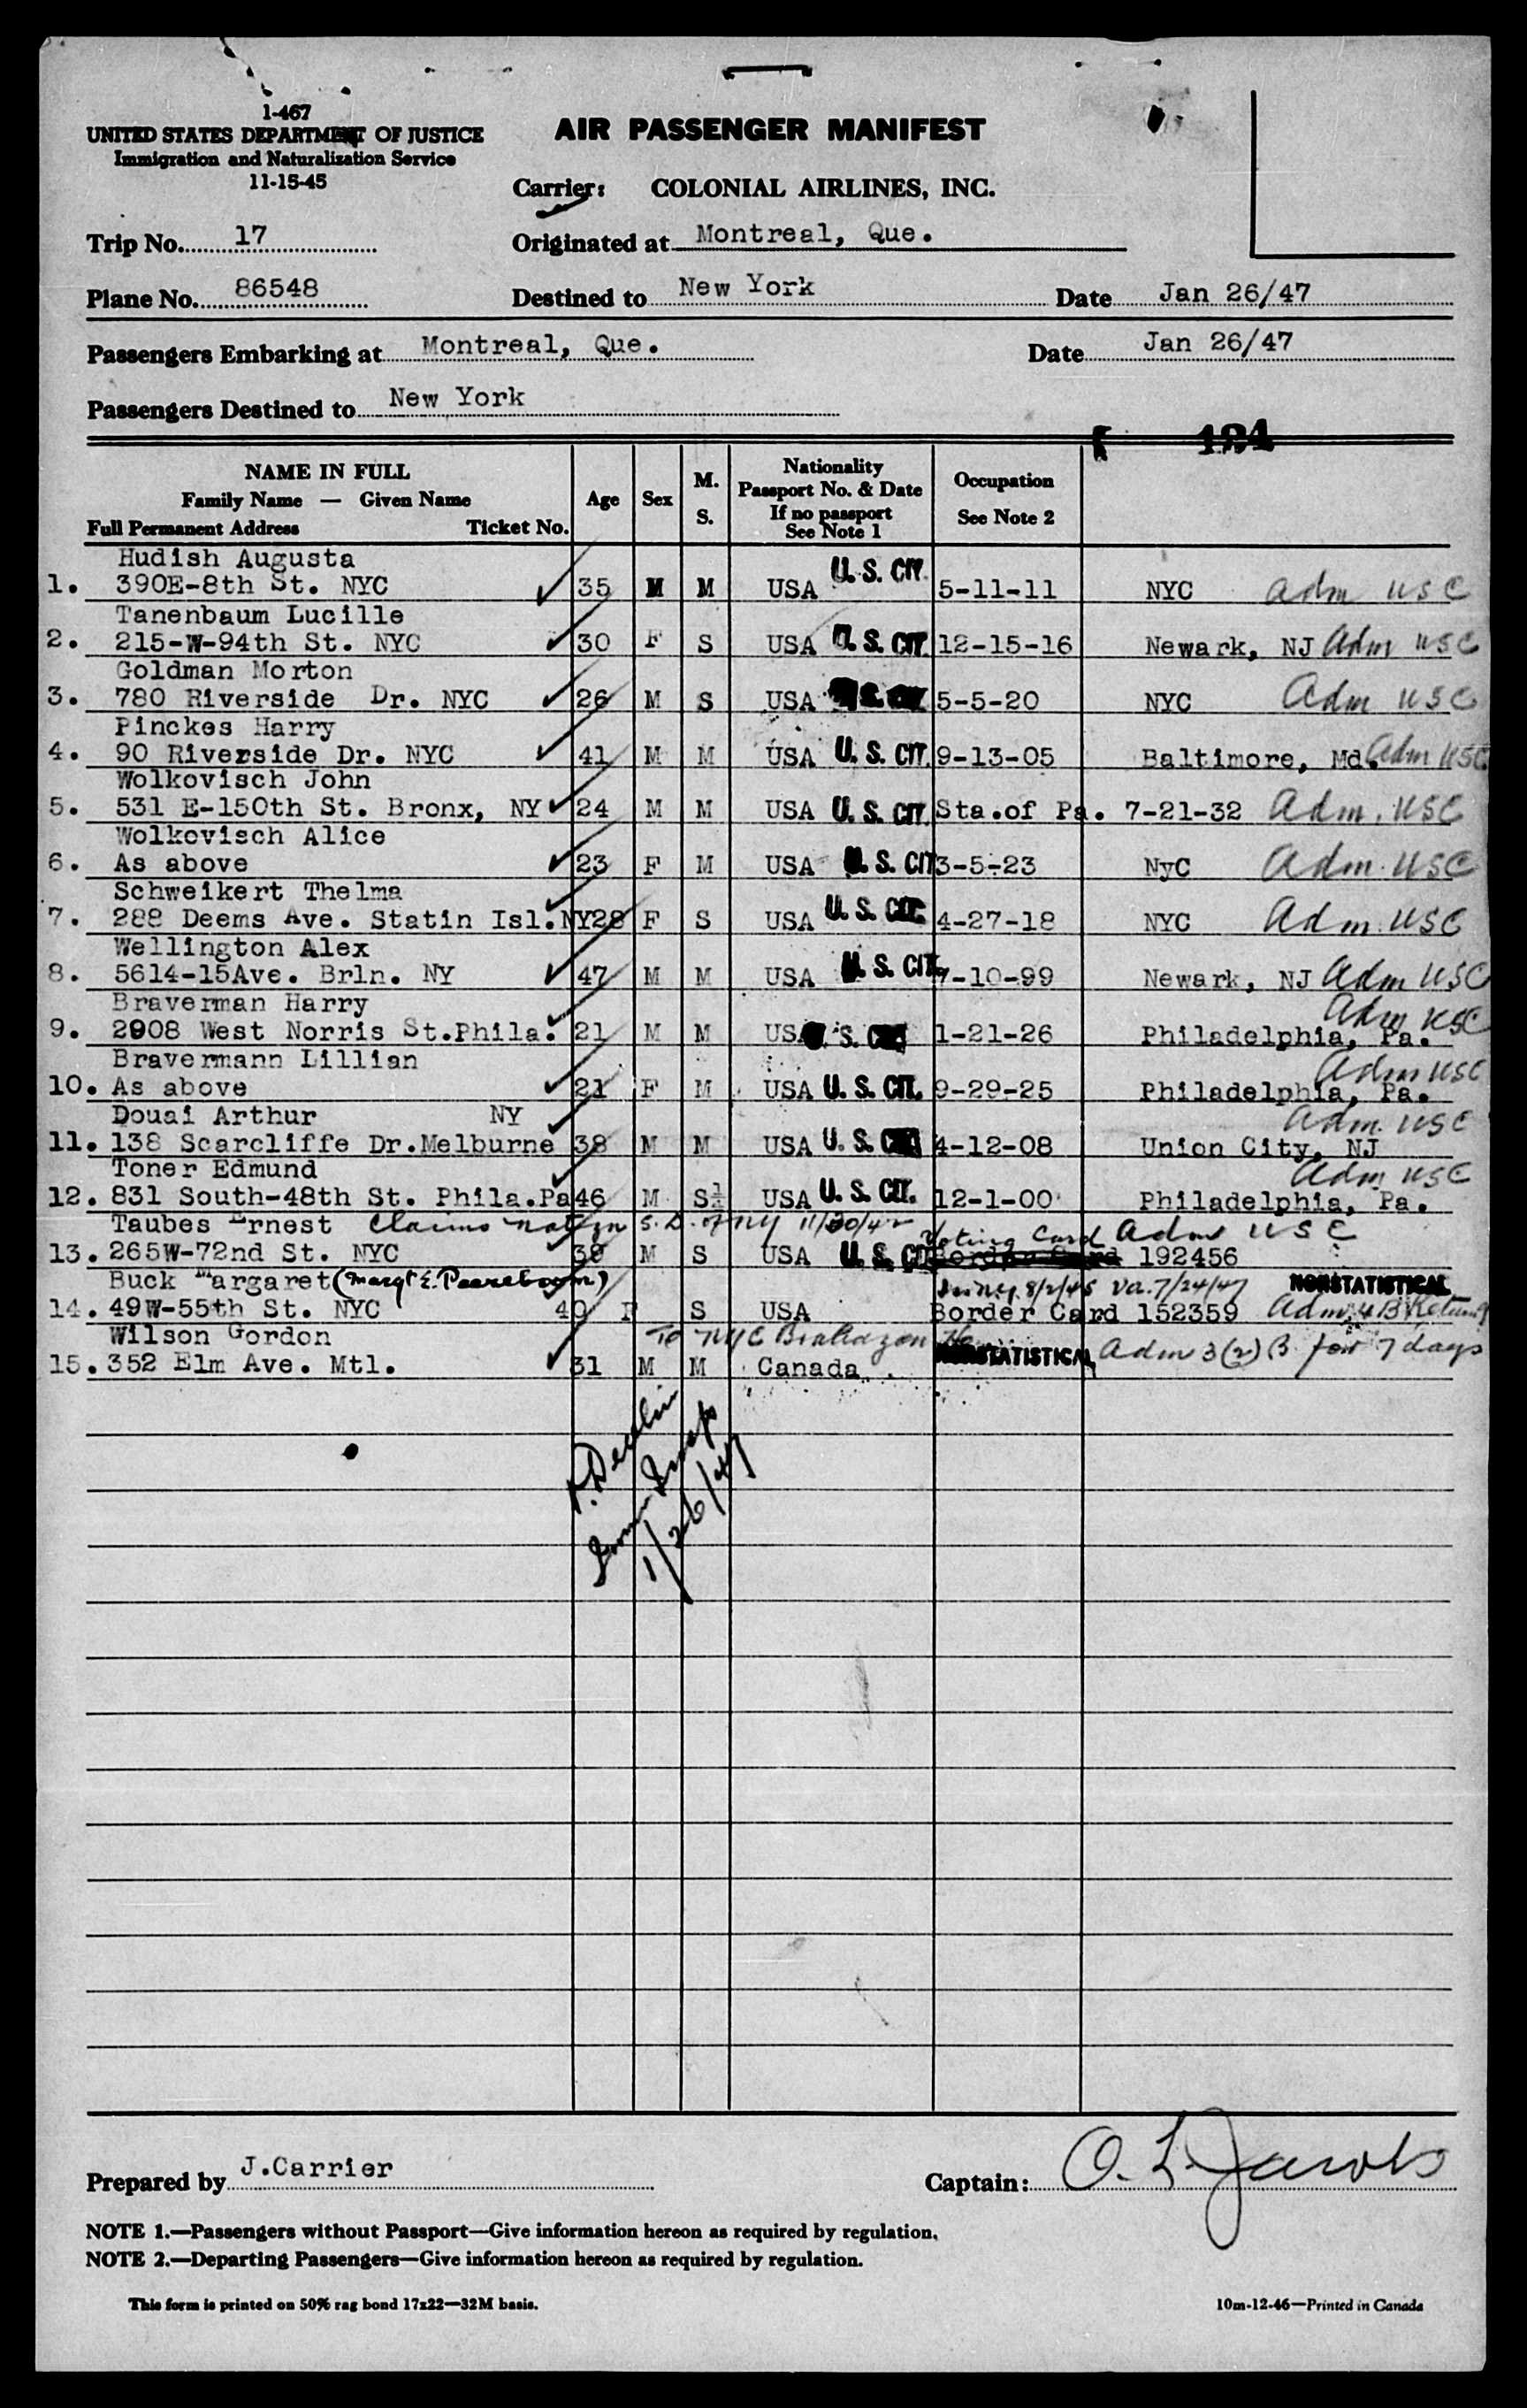 1-467
UNITED STATES DEPARTMENT OF JUSTICE
Immigration and Naturalization Service
11-15-45
AIR PASSENGER MANIFEST
Carrier: COLONIAL AIRLINES, INC.
Trip No. 17 Originated at Montreal, Que.
Plane No. 86548 Destined to New York Date Jan 26/47
Passengers Embarking at Montreal, Que. Date Jan 26/47
Passengers Destined to New York
NAME IN FULL
Family Name — Given Name
Full Permanent Address Ticket No.
Age
Sex
M.
S.
Nationality
Passport No. & Date
If no passport
See Note 1
Occupation
See Note 2
Hudish Augusta
1. 390E-8th St. NYC 35 M M USA U. S. CIT. 5-11-11 NYC adm USC
Tanenbaum Lucille
2. 215-W-94th St. NYC 30 F S USA U. S. CIT. 12-15-16 Newark, NJ Adm USC
Goldman Morton
3. 780 Riverside Dr. NYC 26 M S USA 5-5-20 NYC Adm USC
Pinckes Harry
4. 90 Riverside Dr. NYC 41 M M USA U. S. CIT. 9-13-05 Baltimore, Md. Adm USC
Wolkovisch John
5. 531 E-150th St. Bronx, NY 24 M M USA U. S. CIT. Sta.of Pa. 7-21-32 Adm. USC
Wolkovisch Alice
6. As above 23 F M USA U. S. CIT 3-5-23 NyC Adm. USC
Schweikert Thelma
7. 288 Deems Ave. Statin Isl.NY28 F S USA U. S. CIT. 4-27-18 NYC Adm. USC
Wellington Alex
8. 5614-15Ave. Brln. NY 47 M M USA U. S. CIT. 7-10-99 Newark, NJ Adm USC
Braverman Harry Adm USC
9. 2908 West Norris St.Phila. 21 M M USA S. 1-21-26 Philadelphia, Pa.
Bravermann Lillian Adm USC
10. As above 21 F M USA U. S. CIT. 9-29-25 Philadelphia, Pa.
Douai Arthur NY Adm. USC
11. 138 Scarcliffe Dr.Melburne 38 M M USA U. S. 4-12-08 Union City, NJ
Toner Edmund Adm USC
12. 831 South-48th St. Phila.Pa46 M S½ USA U. S. CIT. 12-1-00 Philadelphia, Pa.
Taubes Ernest Claims natzn S.D. of NY 11/30/42 Voting Card Adm USC
13. 265W-72nd St. NYC 39 M S USA U. S. CIT Border Card 192456
Buck Margaret 8/2/45 Va. 7/24/47 NONSTATISTICAL
14. 49W-55th St. NYC 40 F S USA Border Card 152359 Adm 4 B
Wilson Gordon To NYC
15. 352 Elm Ave. Mtl. 31 M M Canada NONSTATISTICAL Adm 3(2) B for 7 days
1/26/47
Prepared by J.Carrier Captain: O. L. Jacobs
NOTE 1.—Passengers without Passport—Give information hereon as required by regulation.
NOTE 2.—Departing Passengers—Give information hereon as required by regulation.
This form is printed on 50% rag bond 17x22—32M basis. 10m-12-46—Printed in Canada